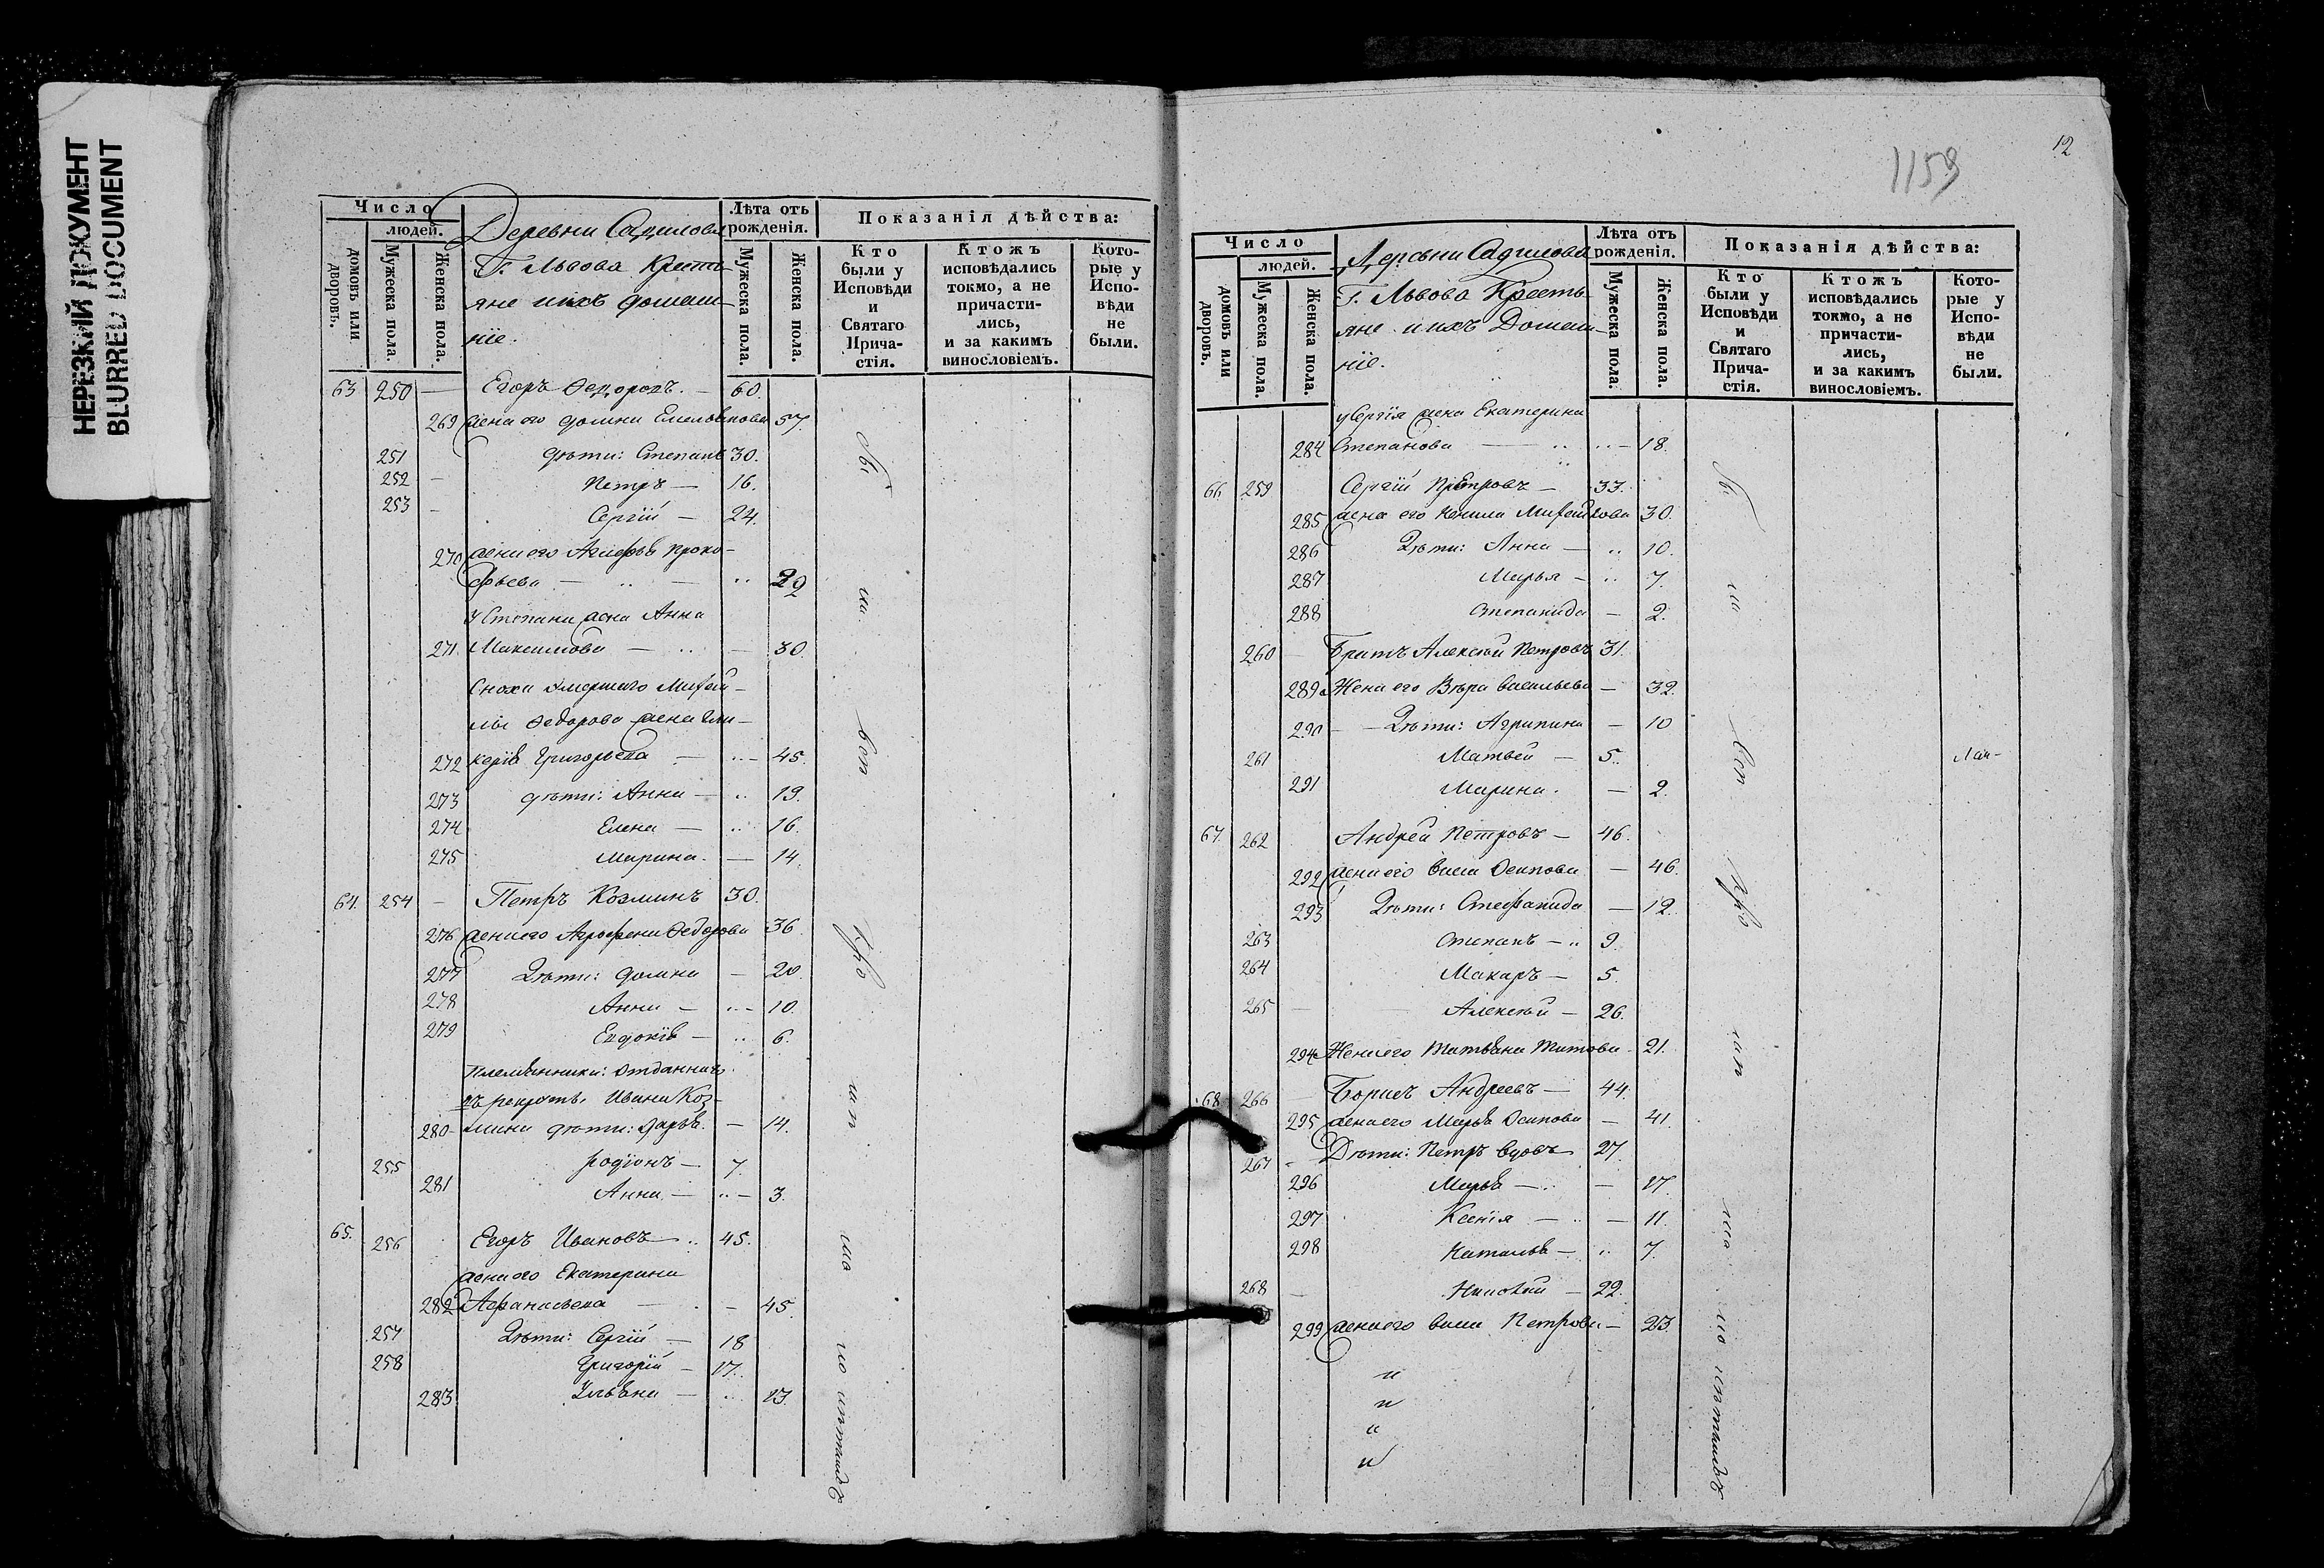 НЕРЕЗКИЙ ДОКУМЕНТ
BLURRED DOCUMENT
Число
людей.
домовъ или дворовъ.
Мужеска пола.
Женска пола.
Деревни Садилова
Г. Львова Кресть-
яне и ихъ домаш-
ніе.
Лѣта отъ рожденія.
Мужеска пола.
Женска пола.
Показанія дѣйства:
Кто были у Исповѣди и Святаго Прича-стія.
Ктожъ исповѣдались токмо, а не причасти-лись, и за какимъ винословіемъ.
Кото-рые у Испо-вѣди не были.
63 250 — Егоръ Ѳедоровъ. — 60.
269 жена его домна Емельянова 57.
251 дѣти: Степанъ 30.
252 — Петръ — 16.
253 — Сергій — 24.
270 жена его Проко-
фьева — .. — .. 29
у Степана жена Анна
271 Максимова — .. — 30.
Сноха умершаго Михай-
лы Ѳедорова жена Гли-
272 керія Григорьева — ..— 45.
273 дѣти: Анна — .. 19.
274 Елена — .. 16.
275 Марина. — 14.
64. 254 — Петръ Козминъ 30.
276 жена его Агрофена Ѳедорова 36
277 Дѣти: домна — 20.
278 Анна — ..— 10.
279 Евдокія — .. 6.
племянники: отданнаго
въ рекруты Ивана Коз-
280 мина дѣти: Дарья. — 14.
255 родіонъ — 7.
281 Анна — ..— 3.
65. 256 Егоръ Ивановъ .. 45.
жена его Екатерина
282 Афанасьева — . — 45.
257 Дѣти: Сергій — 18
258 Григорій — 17.
283 Ульяна — .. 13.
12
1159
Число
людей.
домовъ или дворовъ.
Мужеска пола.
Женска пола.
Деревни Садилова
Г. Львова Кресть-
яне и ихъ Домаш-
ніе.
Лѣта отъ рожденія.
Мужеска пола.
Женска пола.
Показанія дѣйства:
Кто были у Исповѣди и Святаго Прича-стія.
Ктожъ исповѣдались токмо, а не причасти-лись, и за какимъ винословіемъ.
Кото-рые у Испо-вѣди не были.
у Сергія жена Екатерина
284 Степанова — .. ..— 18.
66 259 Сергій Петровъ — 33.
285 жена его Михайлова 30.
286 Дѣти: Анна — .. 10.
287 Марья — .. 7.
288 Степанида — 2.
260 — Братъ Алексѣй Петровъ 31.
289 Жена его Вѣра Васильева — 32.
290 — Дѣти: Агрипина — 10
261 Матвей — 5.
291 Марина. — 2.
67. 262 Андрей Петровъ — 46.
292 жена его Васа Осипова — 46.
293 Дѣти: Стефанида — 12.
263 Степанъ — .. 9.
264 Макаръ — 5.
265 — Алексѣй — 26.
294 Жена его Татьяна Титова 21.
68 266 — Борисъ Андреевъ — 44.
295 жена его Марья Осипова — 41.
267 — Дѣти: Петръ вдовъ 27.
296 Марья — .. — 17.
297 Ксенія — .. — 11.
298 Наталья — .. 7.
268 — Николай — 22.
299 жена его Васа Петрова — 23.
и
и
и
и